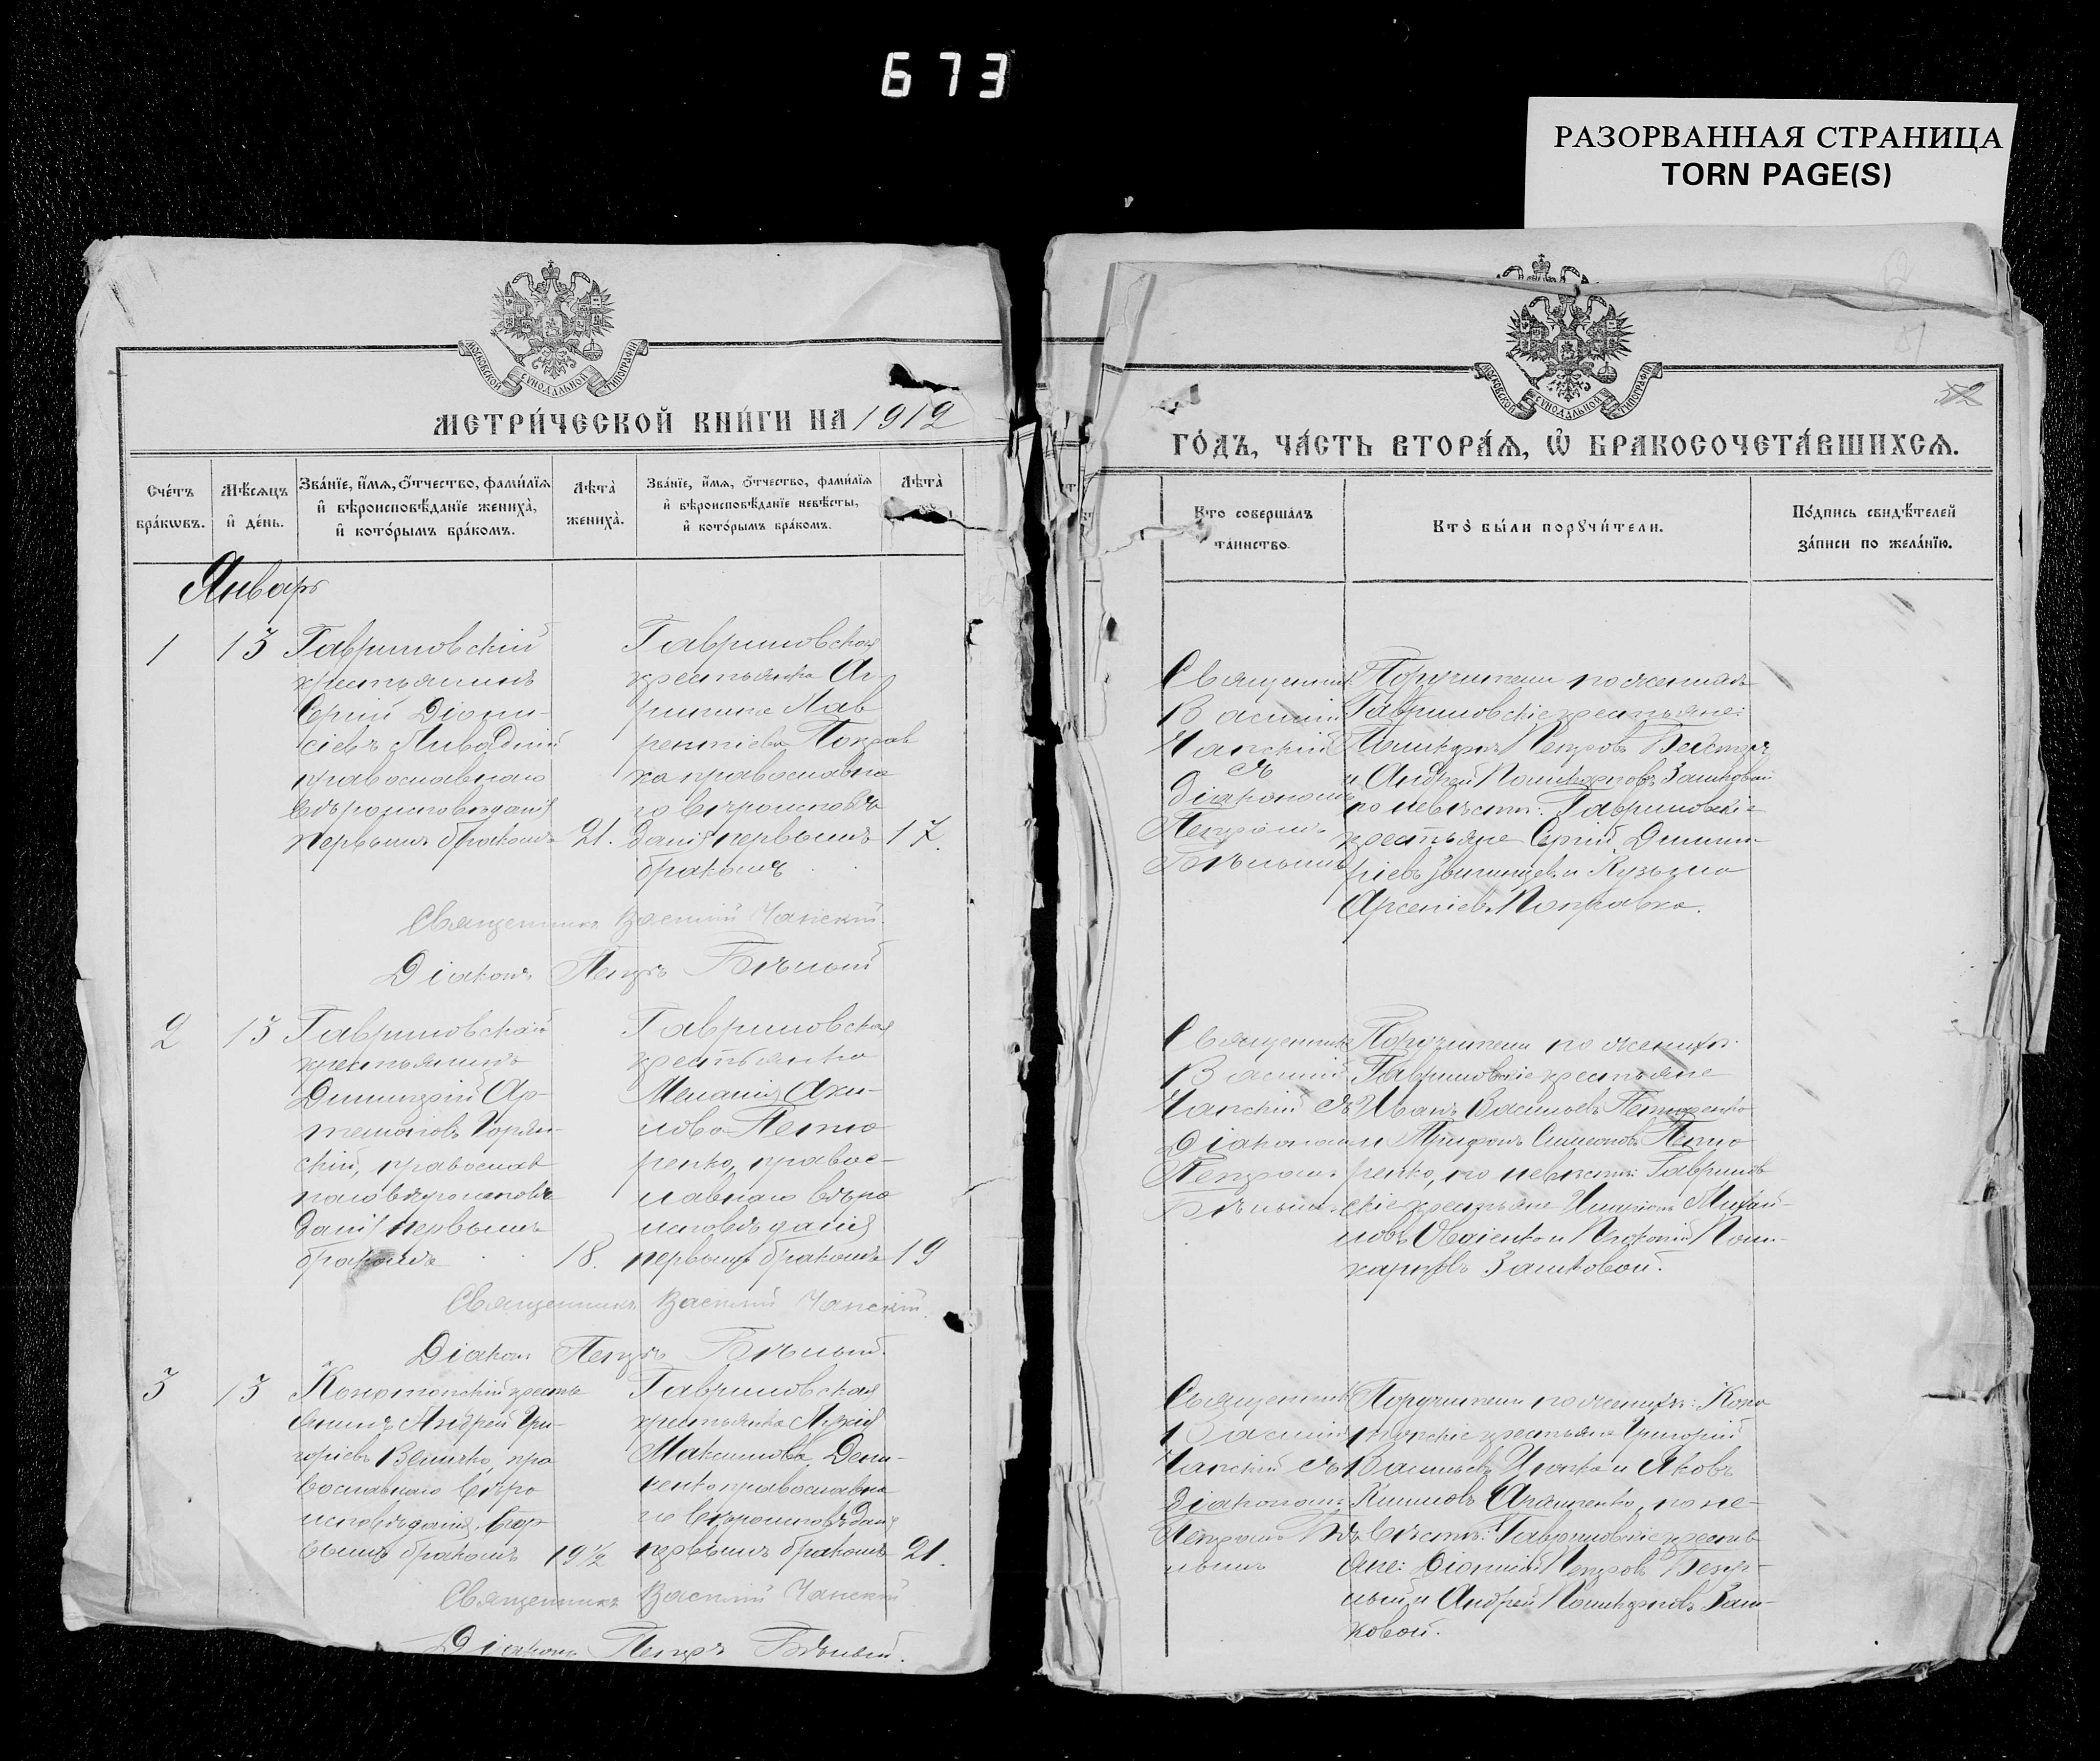 673
РАЗОРВАННАЯ СТРАНИЦА
TORN PAGE(S)
МОСКОВСКОЙ СѴНОДАЛЬНОЙ ТИПОГРАФІИ
МЕТРИ́ЧЕСКОЙ КНИ́ГИ НА 1912
Сче́тъ бра́кѡвъ.
Мѣ́сяцъ и҆ де́нь.
Зва́нїе, и҆́мѧ, ѻ҆́тчество, фами́лїѧ
и҆ вѣроисповѣ́данїе женихà,
и҆ кото́рымъ бра́комъ.
Лѣ́та женихà.
Зва́нїе, и҆́мѧ, ѻ҆́тчество, фами́лїѧ
и҆ вѣроисповѣ́данїе невѣ́сты,
и҆ кото́рымъ бра́комъ.
Лѣ́та
Январь
1
13
Гавриловскій
крестьянинъ
Сергій Діони-
сіевъ Ливадній
православнаго
вѣроисповѣданія
первымъ бракомъ
21.
Гавриловская
крестьянка Аг
рипина Лав
рентіева Поправ
ка православна
го вѣроисповѣ
данія первымъ
бракомъ
17.
Священникъ Василій Чапскій.
Діаконъ Петръ Бѣлый
2
13
Гавриловскій
крестьянинъ
Димитрій Ар-
темоновъ Горян-
скій, православ
наго вѣроисповѣ
данія первымъ
бракомъ
18.
Гавриловская
крестьянка
Меланія Аки-
лова Петю
ренко, правос-
лавнаго вѣро
исповѣданія
первымъ бракомъ
19
Священникъ Василій Чапскій.
Діаконъ Петръ Бѣлый.
3
13
Конотопскій кресть
янинъ Андрей Гри-
горіевъ Величко, пра
вославнаго вѣро
исповѣданія, втор
вымъ бракомъ
19½
Гавриловская
крестьянка
Максимова Дени-
кенко православна
го вѣроисповѣданія
первымъ бракомъ
21.
Священникъ Василій Чапскій
Діаконъ Петръ Бѣлый.
МОСКОВСКОЙ СѴНОДАЛЬНОЙ ТИПОГРАФІИ
52
ГО́ДЪ, ЧА́СТЬ ВТОРА́Ѧ, Ѽ БРАКОСОЧЕТА́ВШИХСѦ.
Кто соверша́лъ
та́инство.
Кто̀ бы́ли порꙋчи́тели.
По́дпись свидѣ́телей
за́писи по жела́нїю.
Священникъ
Василій
Чапскій
съ
діакономъ
Петромъ
Бѣлымъ
Поручители по женихѣ
Гавриловскіе крестьяне:
Поликарпъ Петровъ
и Андрей Поликарповъ Зашковой
по невѣстѣ: Гавриловскіе
крестьяне Сергій Димит
ріевъ и Кузьма
Арсеніевъ Поправка.
Священникъ
Василій
Чапскій съ
діакономъ
Петромъ
Бѣлымъ
Поручители по женихѣ.
Гавриловскіе крестьяне
Иванъ Васильевъ Петюренко
и Трифонъ Симеоновъ Петю
ренко, по невѣстѣ: Гаврилов
скіе крестьяне Михай-
ловъ и Прокопій Поли-
карповъ Зашковой.
Священникъ
Василій
Чапскій съ
діакономъ
Петромъ Бѣ
лымъ
Поручители по женихѣ: Коно
топскіе крестьяне Григорій
Васильевъ и Яковъ
Климовъ по не-
вѣстѣ: Гавриловскіе кресть
яне: Діонисій Петровъ
и Андрей Поликарповъ Заш-
ковой.